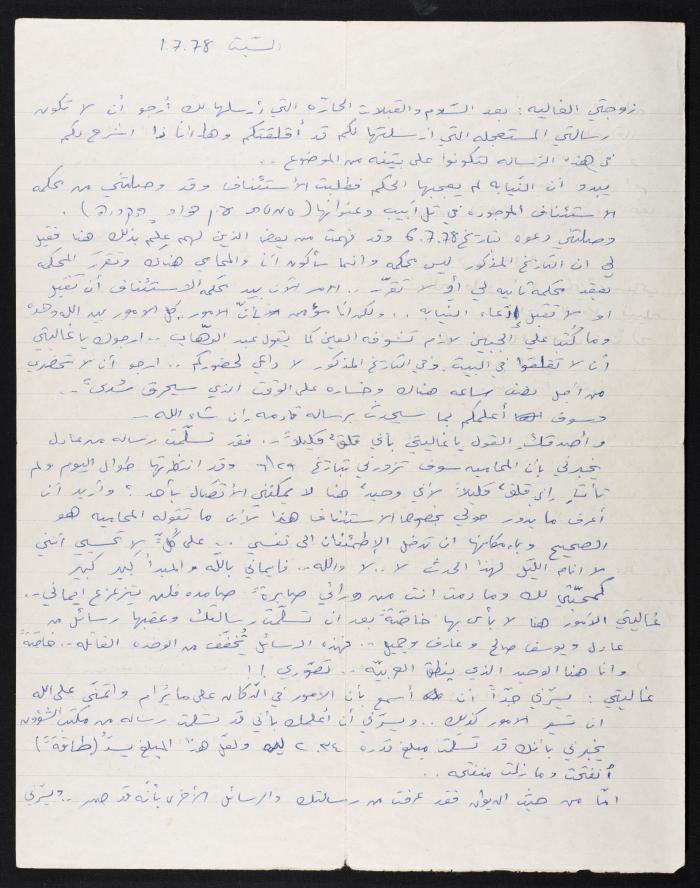 السبت 1.7.78
زوجتي الغاليه : بعد السّلام والقبلات الحارّه التي أرسلها لك أرجو أن لا تكون
رسالتي المستعجله التي ارسلتها لكم قد أقلقتكم وها انا ذا اشرح لكم
في هذه الرّساله لتكونوا على بيّنه من الموضوع ..
يبدو أن النّيابه لم يعجبها الحكم فطلبت الأستئناف وقد وصلتني من محكمه
الاستئناف الموجوده في تل أبيب وعنوانها ( ).
وصلتني دعوه بتاريخ 6.7.78 وقد فهمت من بعض الذين لهم علم بذلك هنا فقيل
لي ان التاريخ المذكور ليس محكمه وانما سأكون أنا والمحامي هناك وتقرّر المحكمه
بعقد محكمة ثانيه لي أو لا تقرّر .. الأمر الآن بيد محكمه الاستئناف أن تقبل
او لا تقبل إدّعاء النّيابه .. ولكن انا مؤمن بأنّ الامور .. كل الامور بيد اللّه وحده
وما كُتب على الجبين لازم تشوفه العين كما يقول عبد الوهّاب .. ارجوك يا غاليتي
أن لا تقلقوا في البيت . وفي التاريخ المذكور لا داعي لحضوركم .. ارجو أن لا تحضري
من أجل نصف ساعه هناك وخساره على الوقت الذي سيحرق سُدىً ..
وسوف أعلمكم بما سيحدث برساله قادمه إن شاء اللّه ..
وأصدقك القول يا غاليتي بأني قلقٌ قليلاً .. فقد تسلّمت رساله من عادل
يخبرني بأن المحاميه سوف تزورني بتاريخ ٦/٢٩ وقد انتظرتها طوال اليوم ولم
تأتِ .. إني قلقٌ قليلاً لأني وحيدٌ هنا لا يمكنني الأتّصال بأحد ؟ وأريد أن
أعرف ما يدور حولي بخصوص الاستئناف هذا لأن ما تقوله المحاميه هو
الصحيح وبإمكانها ان تدخل الإطمئنان الى نفسي .. على كُلٍّ لا تحسبي أنني
لا انام اللّيل لهذا الحدث لا .. لا واللّه .. فإيماني باللّه والمبدأ كبير كبير
كمحبّتي لك وما دمت انت من ورائي صابرةً صامده فلن يتزعزع ايماني ..
غاليتي الأمور هنا لا بأس بها خاصّةً بعد ان تسلّمت رسالتك وعقبها رسائل من
عادل ويوسف صالح وعارف وجميل .. فهذه الرسائل تُخفّف من الوحده القاتله .. خاصّةً
وانا هنا الوحيد الذي ينطق العربيّه .. تصوّري !!
غاليتي : يسرّني جدّاً ان أسمع بأن الامور في الدّكان على ما يُرام واتمنّى على اللّه
ان تسير الأمور كذلك .. ويسرّني أن أعلمك بأني قد تسلمت رساله من مكتب الشؤون
يخبرني بأنك قد تسلّمت مبلغ قدره ٢٠٣٤ ليره ولعلّ هذا المبلغ يسدُّ (طاقةً)
اُنفتحت وما زالت منفتحه ..
امّا من حيث الديوان فقد عرفت من رسالتك والرسائل الأخرى بأنّه قد صدر .. ويسرّني